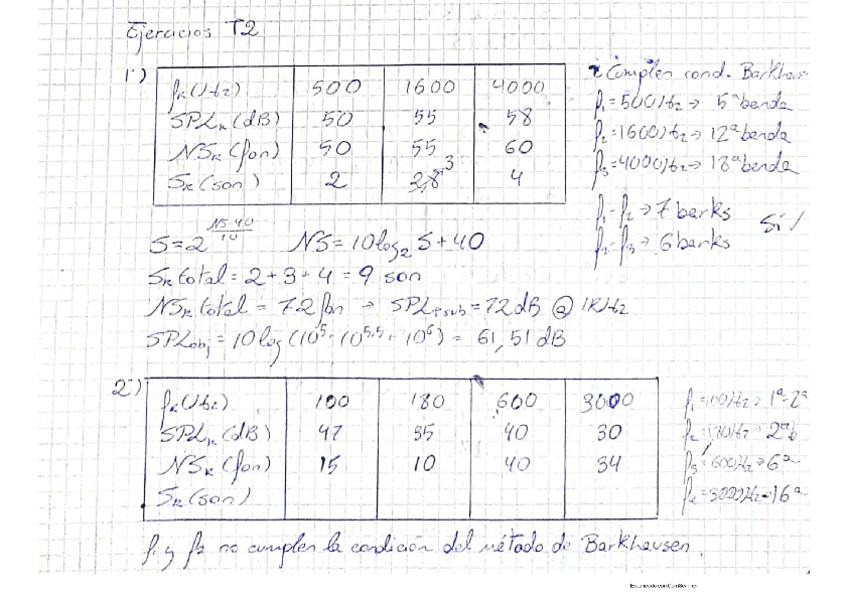 Ejercicios T2
1º)
fk (Hz) 500 1600 4000
SPLk (dB) 50 55 58
NSk (fon) 50 55 60
Sk (son) 2 2,8 3 4
¿Cumplen cond. Barkhau
f1 = 500Hz → 5ª banda
f2 = 1600Hz → 12ª banda
f3 = 4000Hz → 18ª banda
f1 - f2 → 7 barks
f2 - f3 → 6 barks
Sí
S = 2^(NS-40)/10 NS = 10 log2 S + 40
Sk total = 2 + 3 + 4 = 9 son
NSk total = 72 fon → SPLpsub = 72 dB @ 1KHz
SPLobj = 10 log (10^5 + 10^5.5 + 10^6) = 61,51 dB
2º)
fk (Hz) 100 180 600 3000
SPLk (dB) 47 35 40 30
NSk (fon) 15 10 40 34
Sk (son)
f1 = 100Hz → 1ª-2ª
f2 = Hz → 2ª b
f3 = 600Hz → 6ª
f4 = 3000Hz → 16ª
f1 y f2 no cumplen la condición del método de Barkhausen.
Escaneado con CamScanner